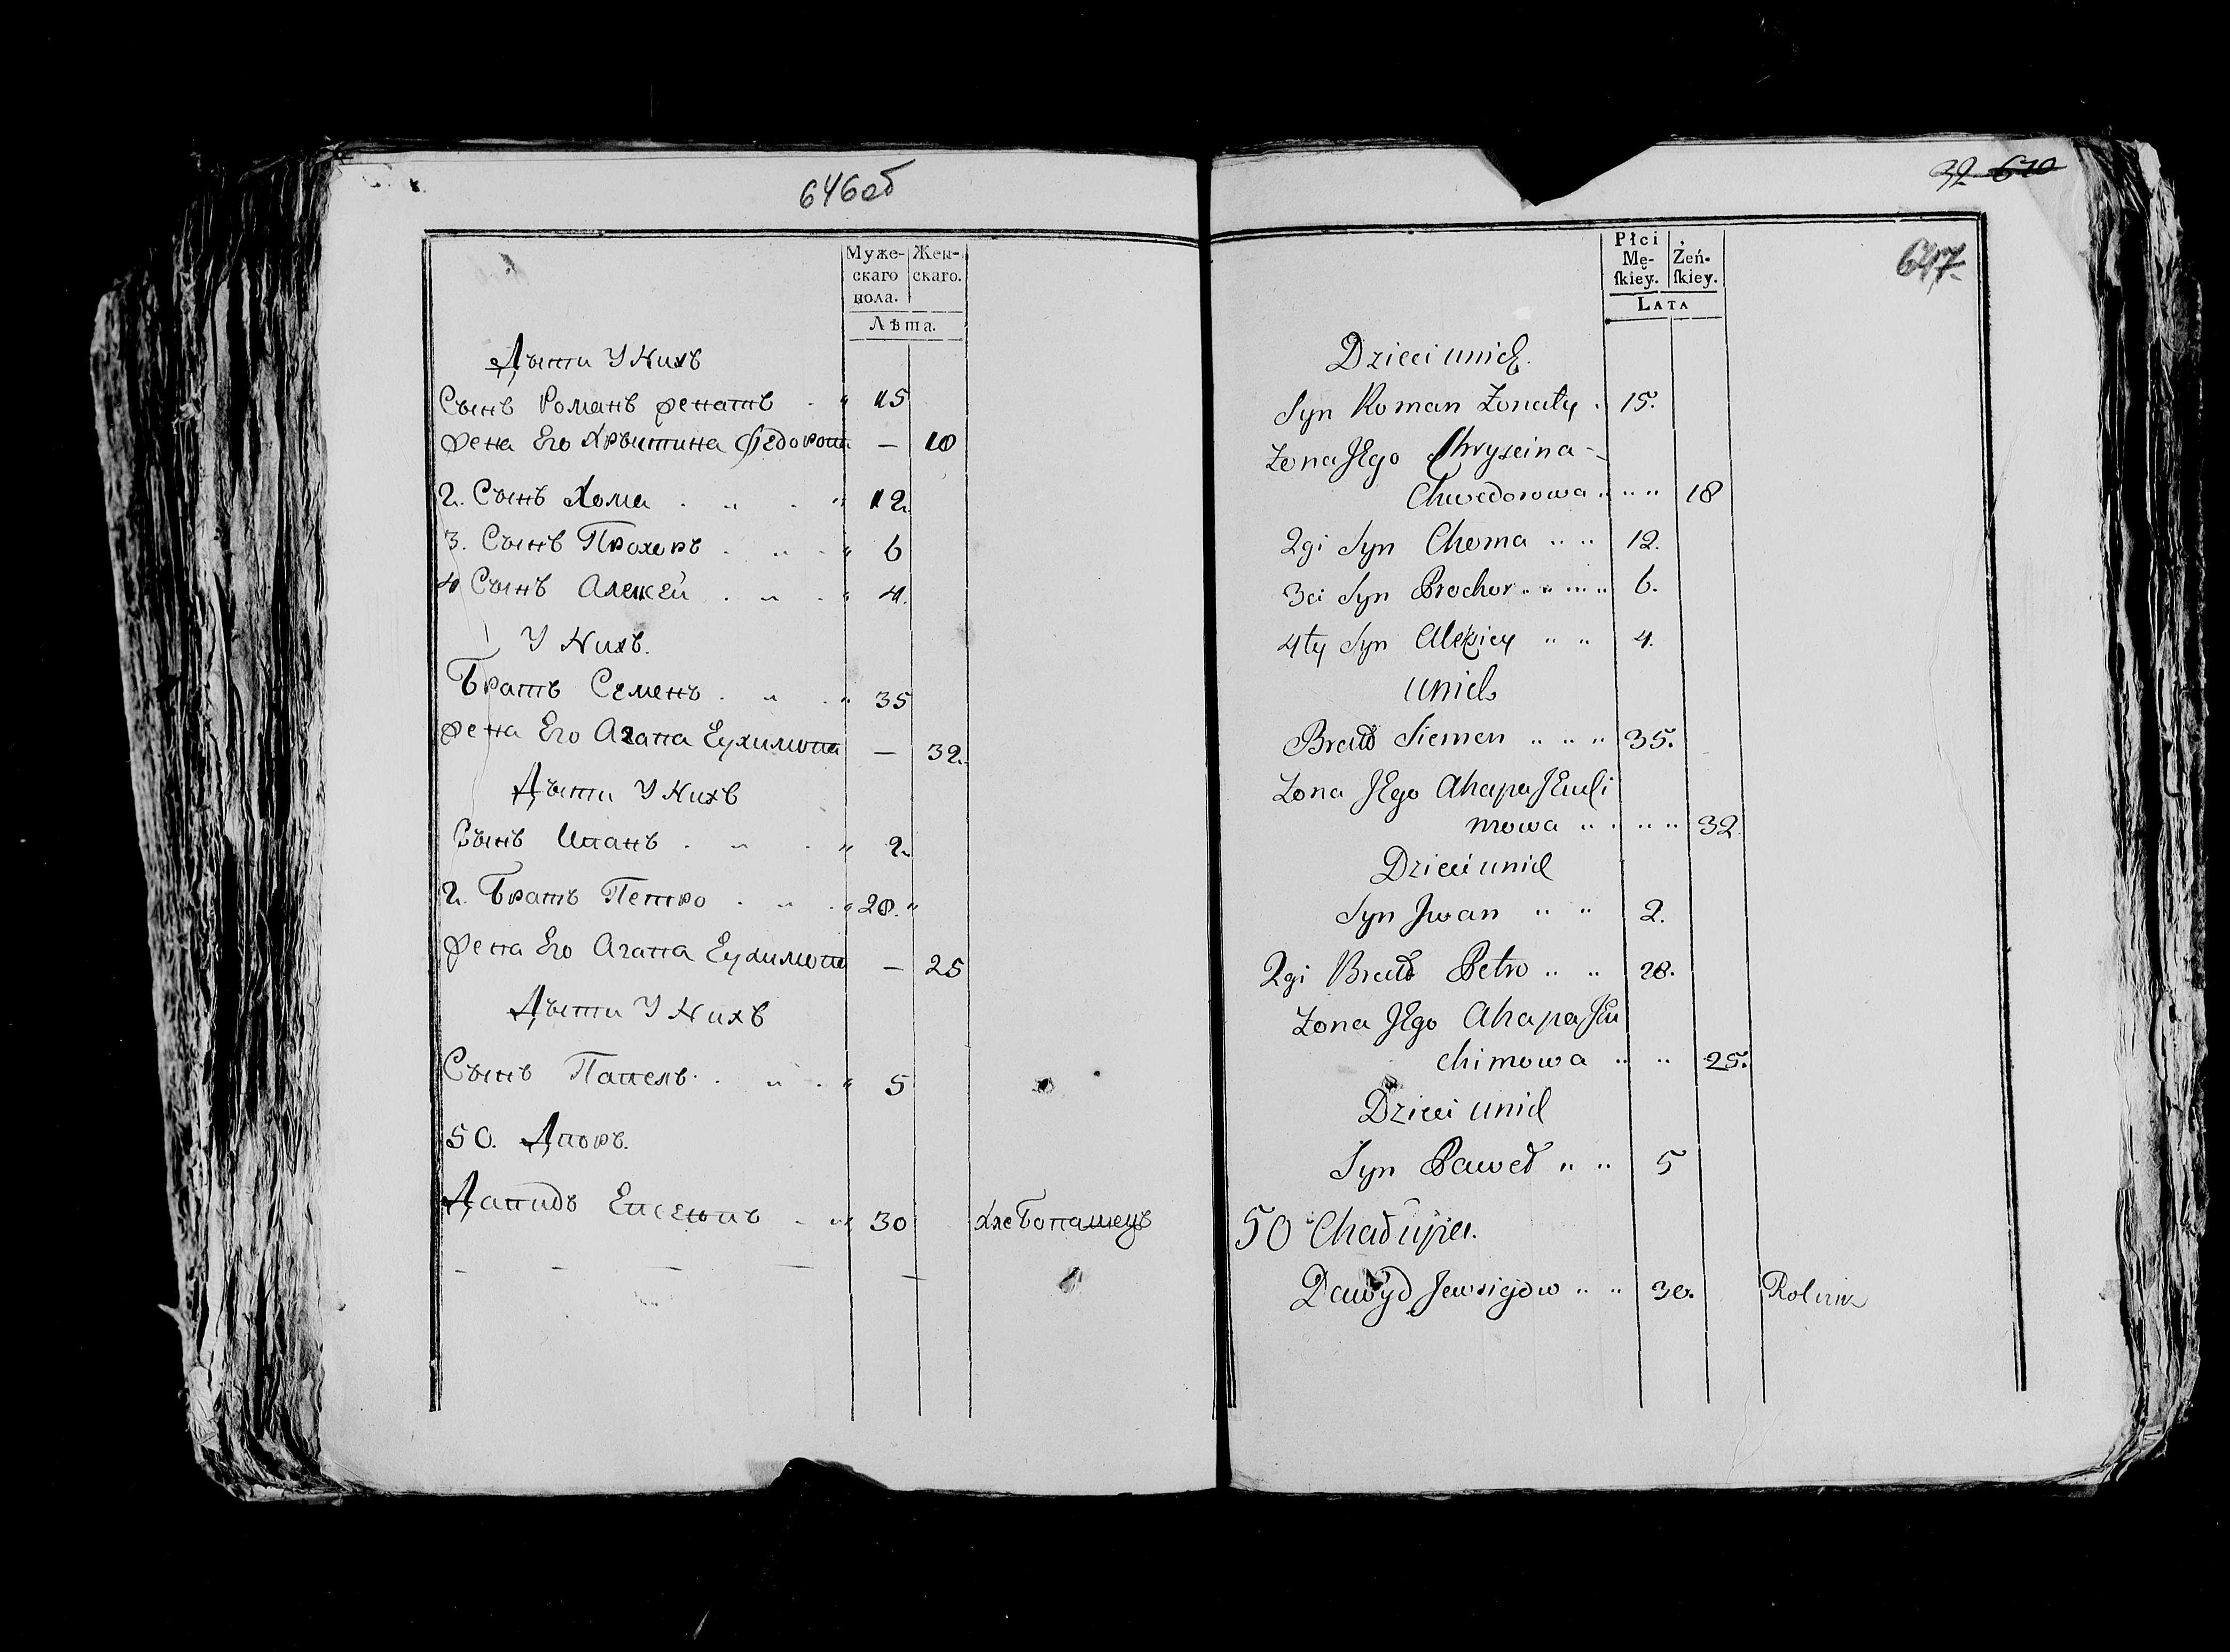 646об
Муже-
скаго
пола.
Жен-
скаго.
Лѣта.
Дѣти У Нихъ
Сынъ Романъ женатъ . " 15
жена Его Хрыстина Федорова — 18
2. Сынъ Хома . " . " 12
3. Сынъ Прохоръ . " . " 6
4 Сынъ Алексей . " . " 4.
У Нихъ.
Братъ Семенъ . " . " 35
жена Его Агапа Еухимова — 32
Дѣти У Нихъ
Сынъ Иванъ . " . " 2
2. Братъ Петро . " . " 28. "
жена Его Агапа Еухимова — 25
Дѣти У Нихъ
Сынъ Павелъ . " . " 5
50. Дворъ.
Давидъ Евсеювъ . " 30 хлебопашецъ
— — — — —
32 640
647
Płci
Mę-
ſkiey.
Żeń-
ſkiey.
LATA
Dzieci unich.
Syn Roman Żonaty . 15.
Żona JEgo Chryscina -
Chwedorowa " " " 18
2gi Syn Choma " " 12.
3ci Syn Prochor " " " " 6.
4ty Syn Alexiey " " 4.
unich
Brath Siemen " " " 35.
Żona JEgo Ahapa JEuchi
mowa " " " " 32
Dzieci unich
Syn Jwan " " 2.
2gi Brath Petro " " 28.
Żona JEgo Ahapa JEu
chimowa " " 25.
Dzieci unich
Syn Paweł " " 5
50 Chałupa.
Dawyd Jewsiejow " " 30. Rolnik